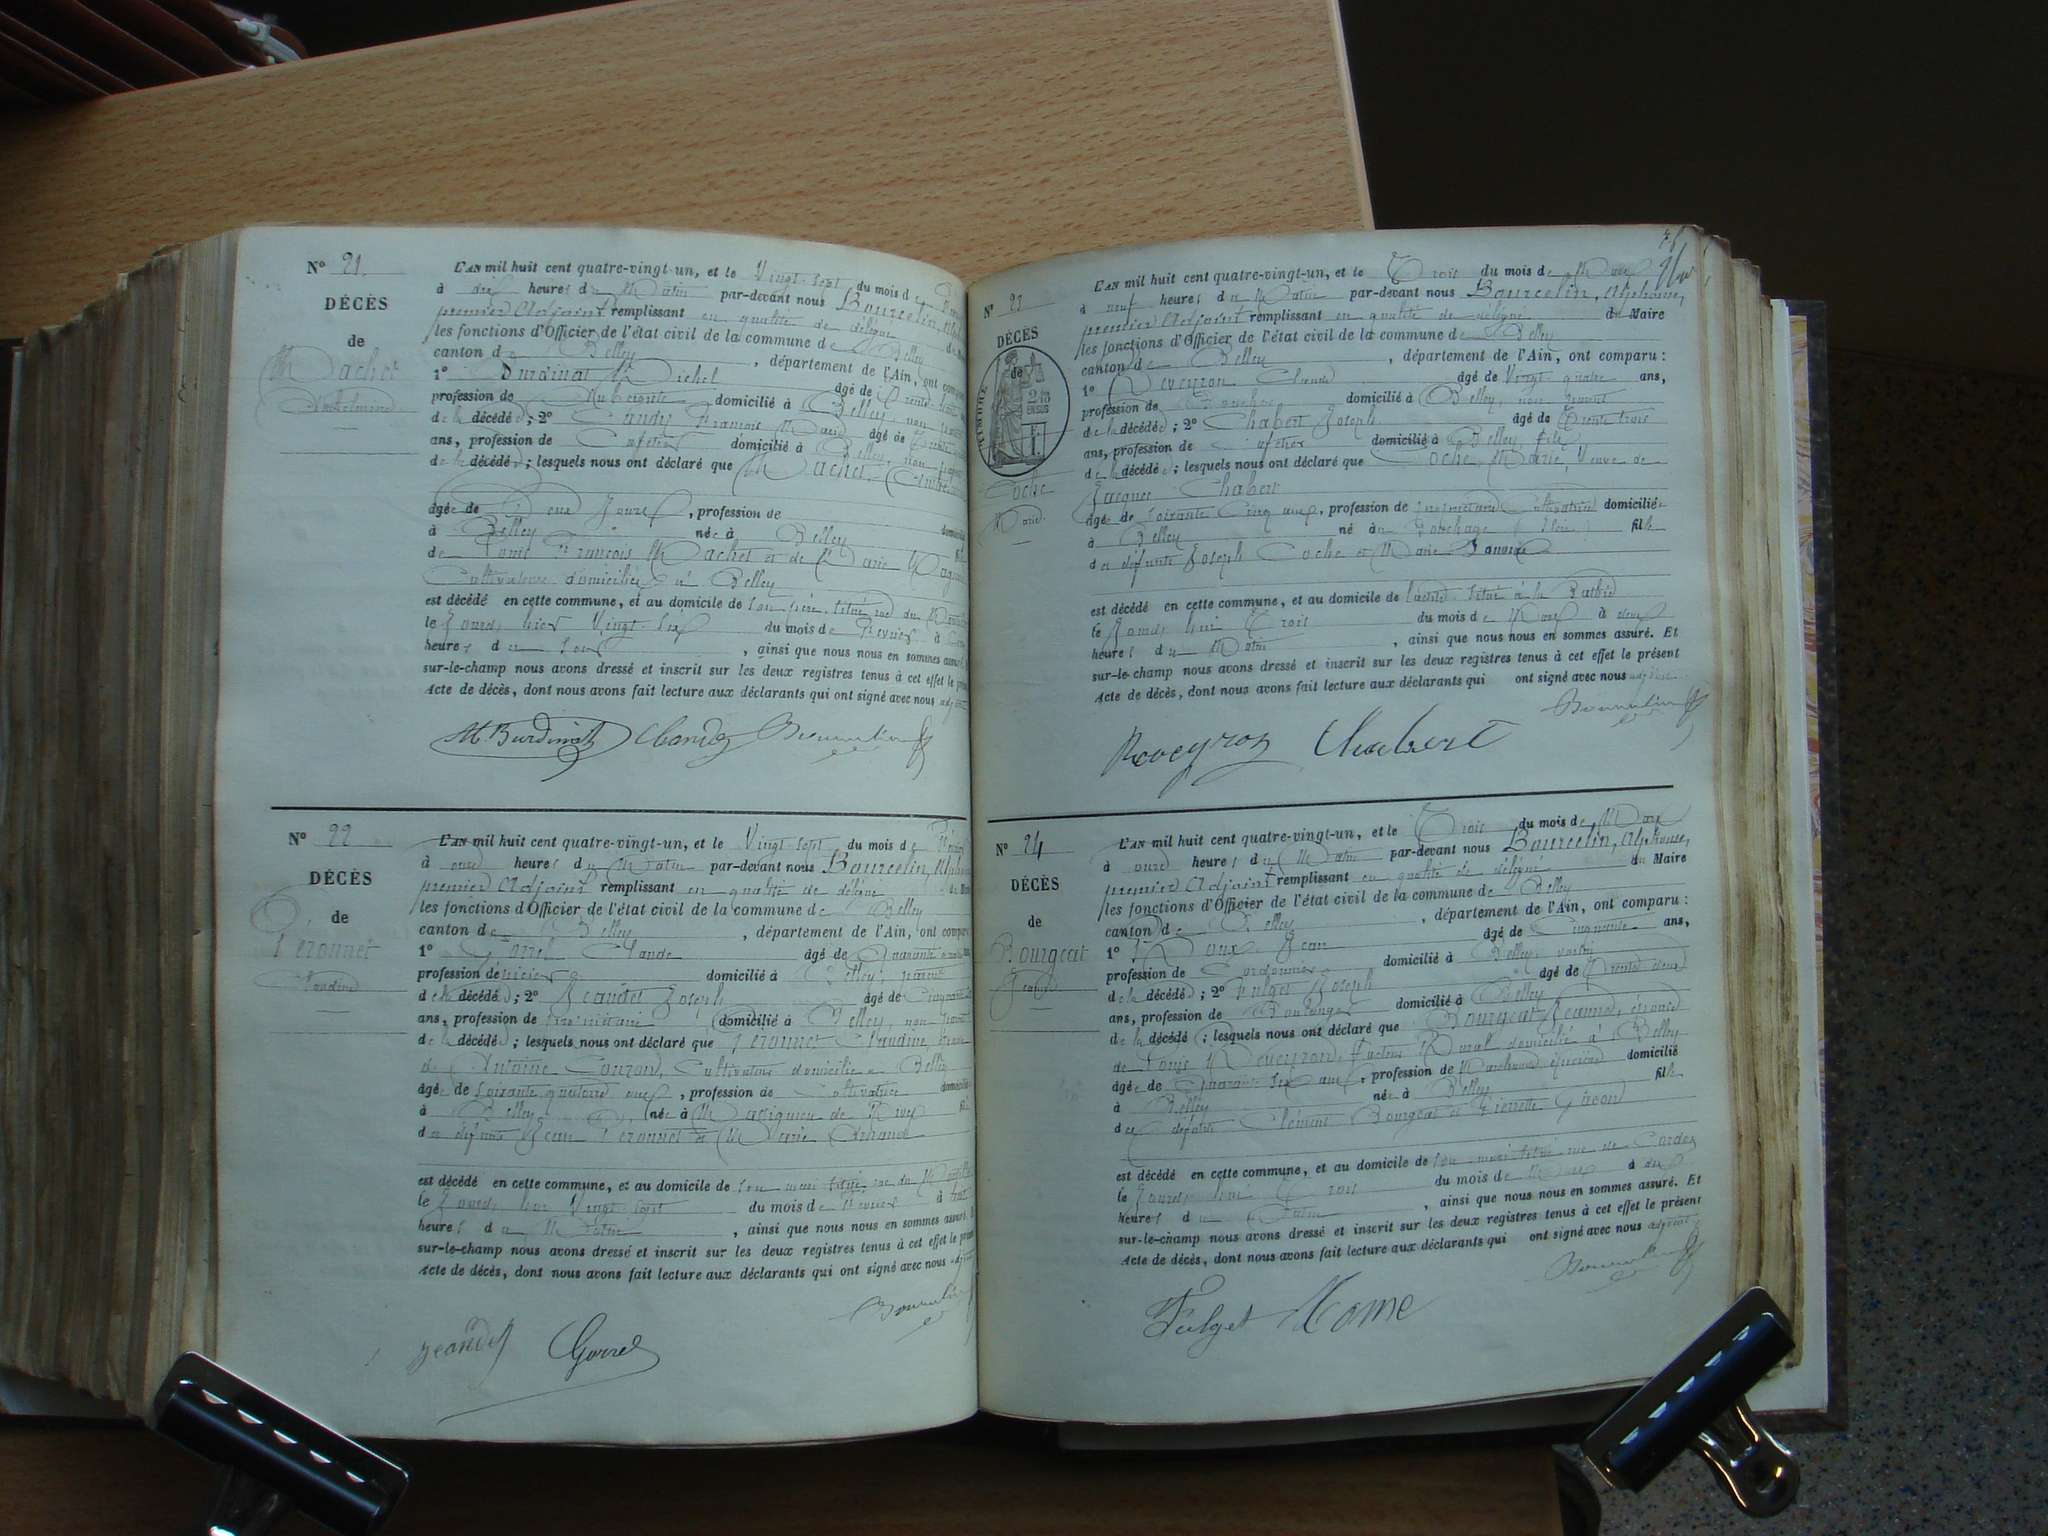 N° 21.
DÉCÈS
de
Machet
L'AN mil huit cent quatre-vingt-un, et le Vingt-sept du mois de
à dix heures du Matin par-devant nous Bourcelin,
premier Adjoint remplissant en qualité de délégué
les fonctions d'Officier de l'état civil de la commune de Belley
canton de Belley, département de l'Ain, ont
1° Burdinat Michel âgé de
profession de Aubergiste domicilié à Belley, non
de la décédée ; 2° François âgé de
ans, profession de Cafetier domicilié à Belley, non
de la décédée ; lesquels nous ont déclaré que Machet
âgée de Deux Jours, profession de
à Belley née à Belley
de Louis François Machet et de Marie
Cultivateurs domiciliés à Belley
est décédé en cette commune, et au domicile de son père, situé rue du
le Jour d'hier Vingt-six du mois de Février à
heures du Soir, ainsi que nous nous en sommes assuré.
sur-le-champ nous avons dressé et inscrit sur les deux registres tenus à cet effet le
Acte de décès, dont nous avons fait lecture aux déclarants qui ont signé avec nous
M. Burdinat
N° 22
DÉCÈS
de
Peronnet
Claudine
L'AN mil huit cent quatre-vingt-un, et le Vingt-sept du mois de
à onze heures du Matin par-devant nous Bourcelin,
premier Adjoint remplissant en qualité de délégué
les fonctions d'Officier de l'état civil de la commune de Belley
canton de Belley, département de l'Ain, ont
1° Gorrel Claude âgé de Quarante
profession d'épicier domicilié à Belley, parent
de la décédée ; 2° Jeandet Joseph âgé de Cinquante
ans, profession de propriétaire domicilié à Belley, non parent
de la décédée ; lesquels nous ont déclaré que Peronnet Claudine,
de Antoine Couron, Cultivateur domicilié à Belley
âgée de soixante quatorze ans, profession de Cultivatrice
à Belley, née à Massignieu de Rives
de défunts Jean Peronnet et Marie
est décédé en cette commune, et au domicile de son mari situé rue du
le Jourd'hui Vingt-sept du mois de Février à
heures du Matin, ainsi que nous nous en sommes assuré.
sur-le-champ nous avons dressé et inscrit sur les deux registres tenus à cet effet le
Acte de décès, dont nous avons fait lecture aux déclarants qui ont signé avec nous
Jeandet Gorrel
N° 23
DÉCÈS
de
TIMBRE
Coche
Marie
L'AN mil huit cent quatre-vingt-un, et le Trois du mois de Mars
à neuf heures du Matin par-devant nous Bourcelin, Alphonse,
premier Adjoint remplissant en qualité de délégué du Maire
les fonctions d'Officier de l'état civil de la commune de Belley
canton de Belley, département de l'Ain, ont comparu :
1° Reveyron Claude âgé de Vingt-quatre ans,
profession de domicilié à Belley, non parent
de la décédée ; 2° Chabert Joseph âgé de Trente trois
ans, profession de Cafetier domicilié à Belley fils
de la décédée ; lesquels nous ont déclaré que Coche, Marie, Veuve de
Jacques Chabert
âgée de soixante Cinq ans, profession de propriétaire Cultivatrice domiciliée
à Belley née à fille
de défunts Joseph Coche et Marie
est décédé en cette commune, et au domicile de situé à la
le Jourd'hui Trois du mois de Mars à deux
heures du Matin, ainsi que nous nous en sommes assuré. Et
sur-le-champ nous avons dressé et inscrit sur les deux registres tenus à cet effet le présent
Acte de décès, dont nous avons fait lecture aux déclarants qui ont signé avec nous adjoint
Reveyron Chabert
N° 24
DÉCÈS
de
Bourgeat
Jeanne
L'AN mil huit cent quatre-vingt-un, et le Trois du mois de Mars
à onze heures du Matin par-devant nous Bourcelin, Alphonse,
premier Adjoint remplissant en qualité de délégué du Maire
les fonctions d'Officier de l'état civil de la commune de Belley
canton de Belley, département de l'Ain, ont comparu :
1° Jean âgé de Cinquante ans,
profession de Cordonnier domicilié à Belley, voisin
de la décédée ; 2° Fulget Joseph âgé de Trente deux
ans, profession de Boulanger domicilié à Belley
de la décédée ; lesquels nous ont déclaré que Bourgeat Jeanne, épouse
de Louis Reveyron, facteur Rural domicilié à Belley
âgée de Quarante six ans, profession de Marchande épicière domicilié
à Belley née à Belley fille
de défunts Clément Bourgeat et Pierrette
est décédé en cette commune, et au domicile de son mari situé rue de
le Jourd'hui Trois du mois de Mars à
heures du Matin, ainsi que nous nous en sommes assuré. Et
sur-le-champ nous avons dressé et inscrit sur les deux registres tenus à cet effet le présent
Acte de décès, dont nous avons fait lecture aux déclarants qui ont signé avec nous adjoint
Fulget